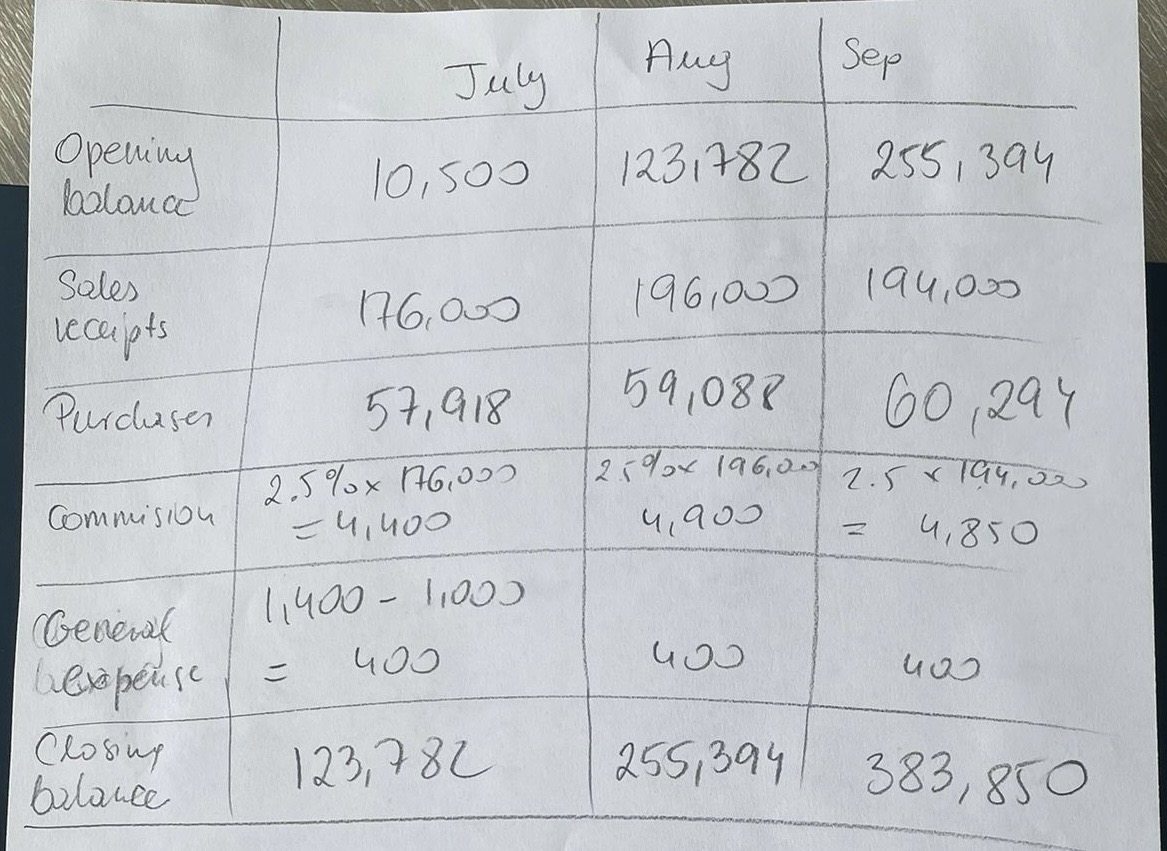 July Aug Sep
Opening
balance 10,500 123,782 255,394
Sales
receipts 176,000 196,000 194,000
Purchases 57,918 59,088 60,294
Commision 2.5% x 176,000 2.5% x 196,000 2.5 x 194,000
= 4,400 4,900 = 4,850
General 1,400 - 1,000
expense = 400 400 400
Closing
balance 123,782 255,394 383,850